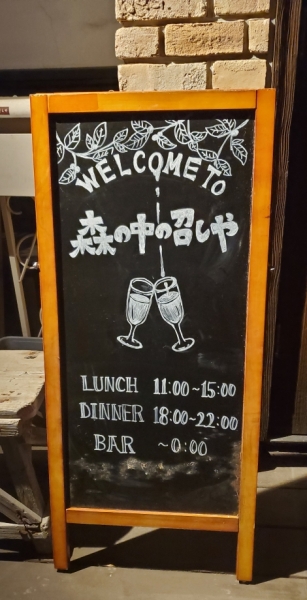 WELCOME TO
森の中の召しや
LUNCH 11:00~15:00
DINNER 18:00~22:00
BAR ~0:00